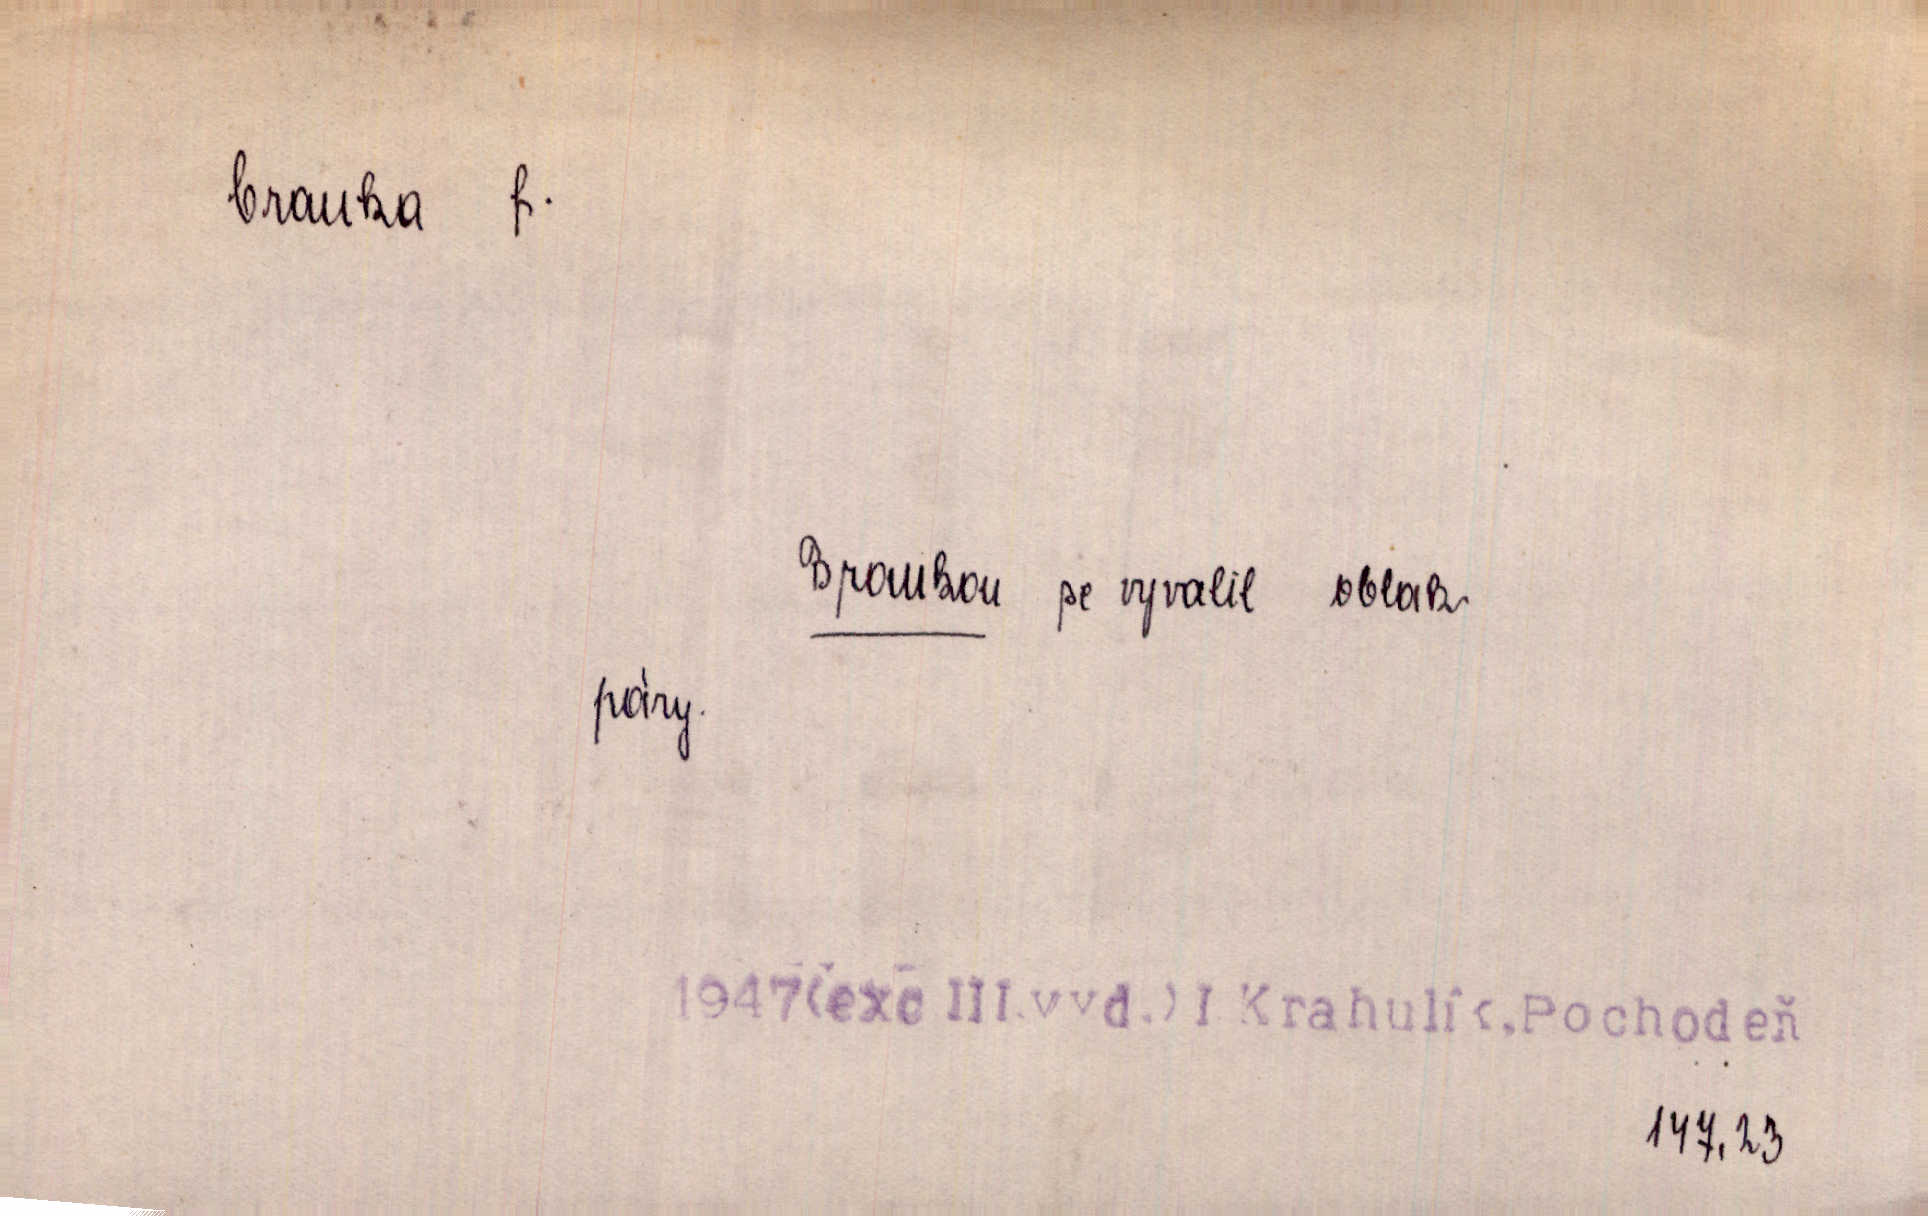 brauka f.
Braukou se vyvalil oblak
páry.
1947(exc III.vyd.) I Krahulík, Pochodeň
147,23